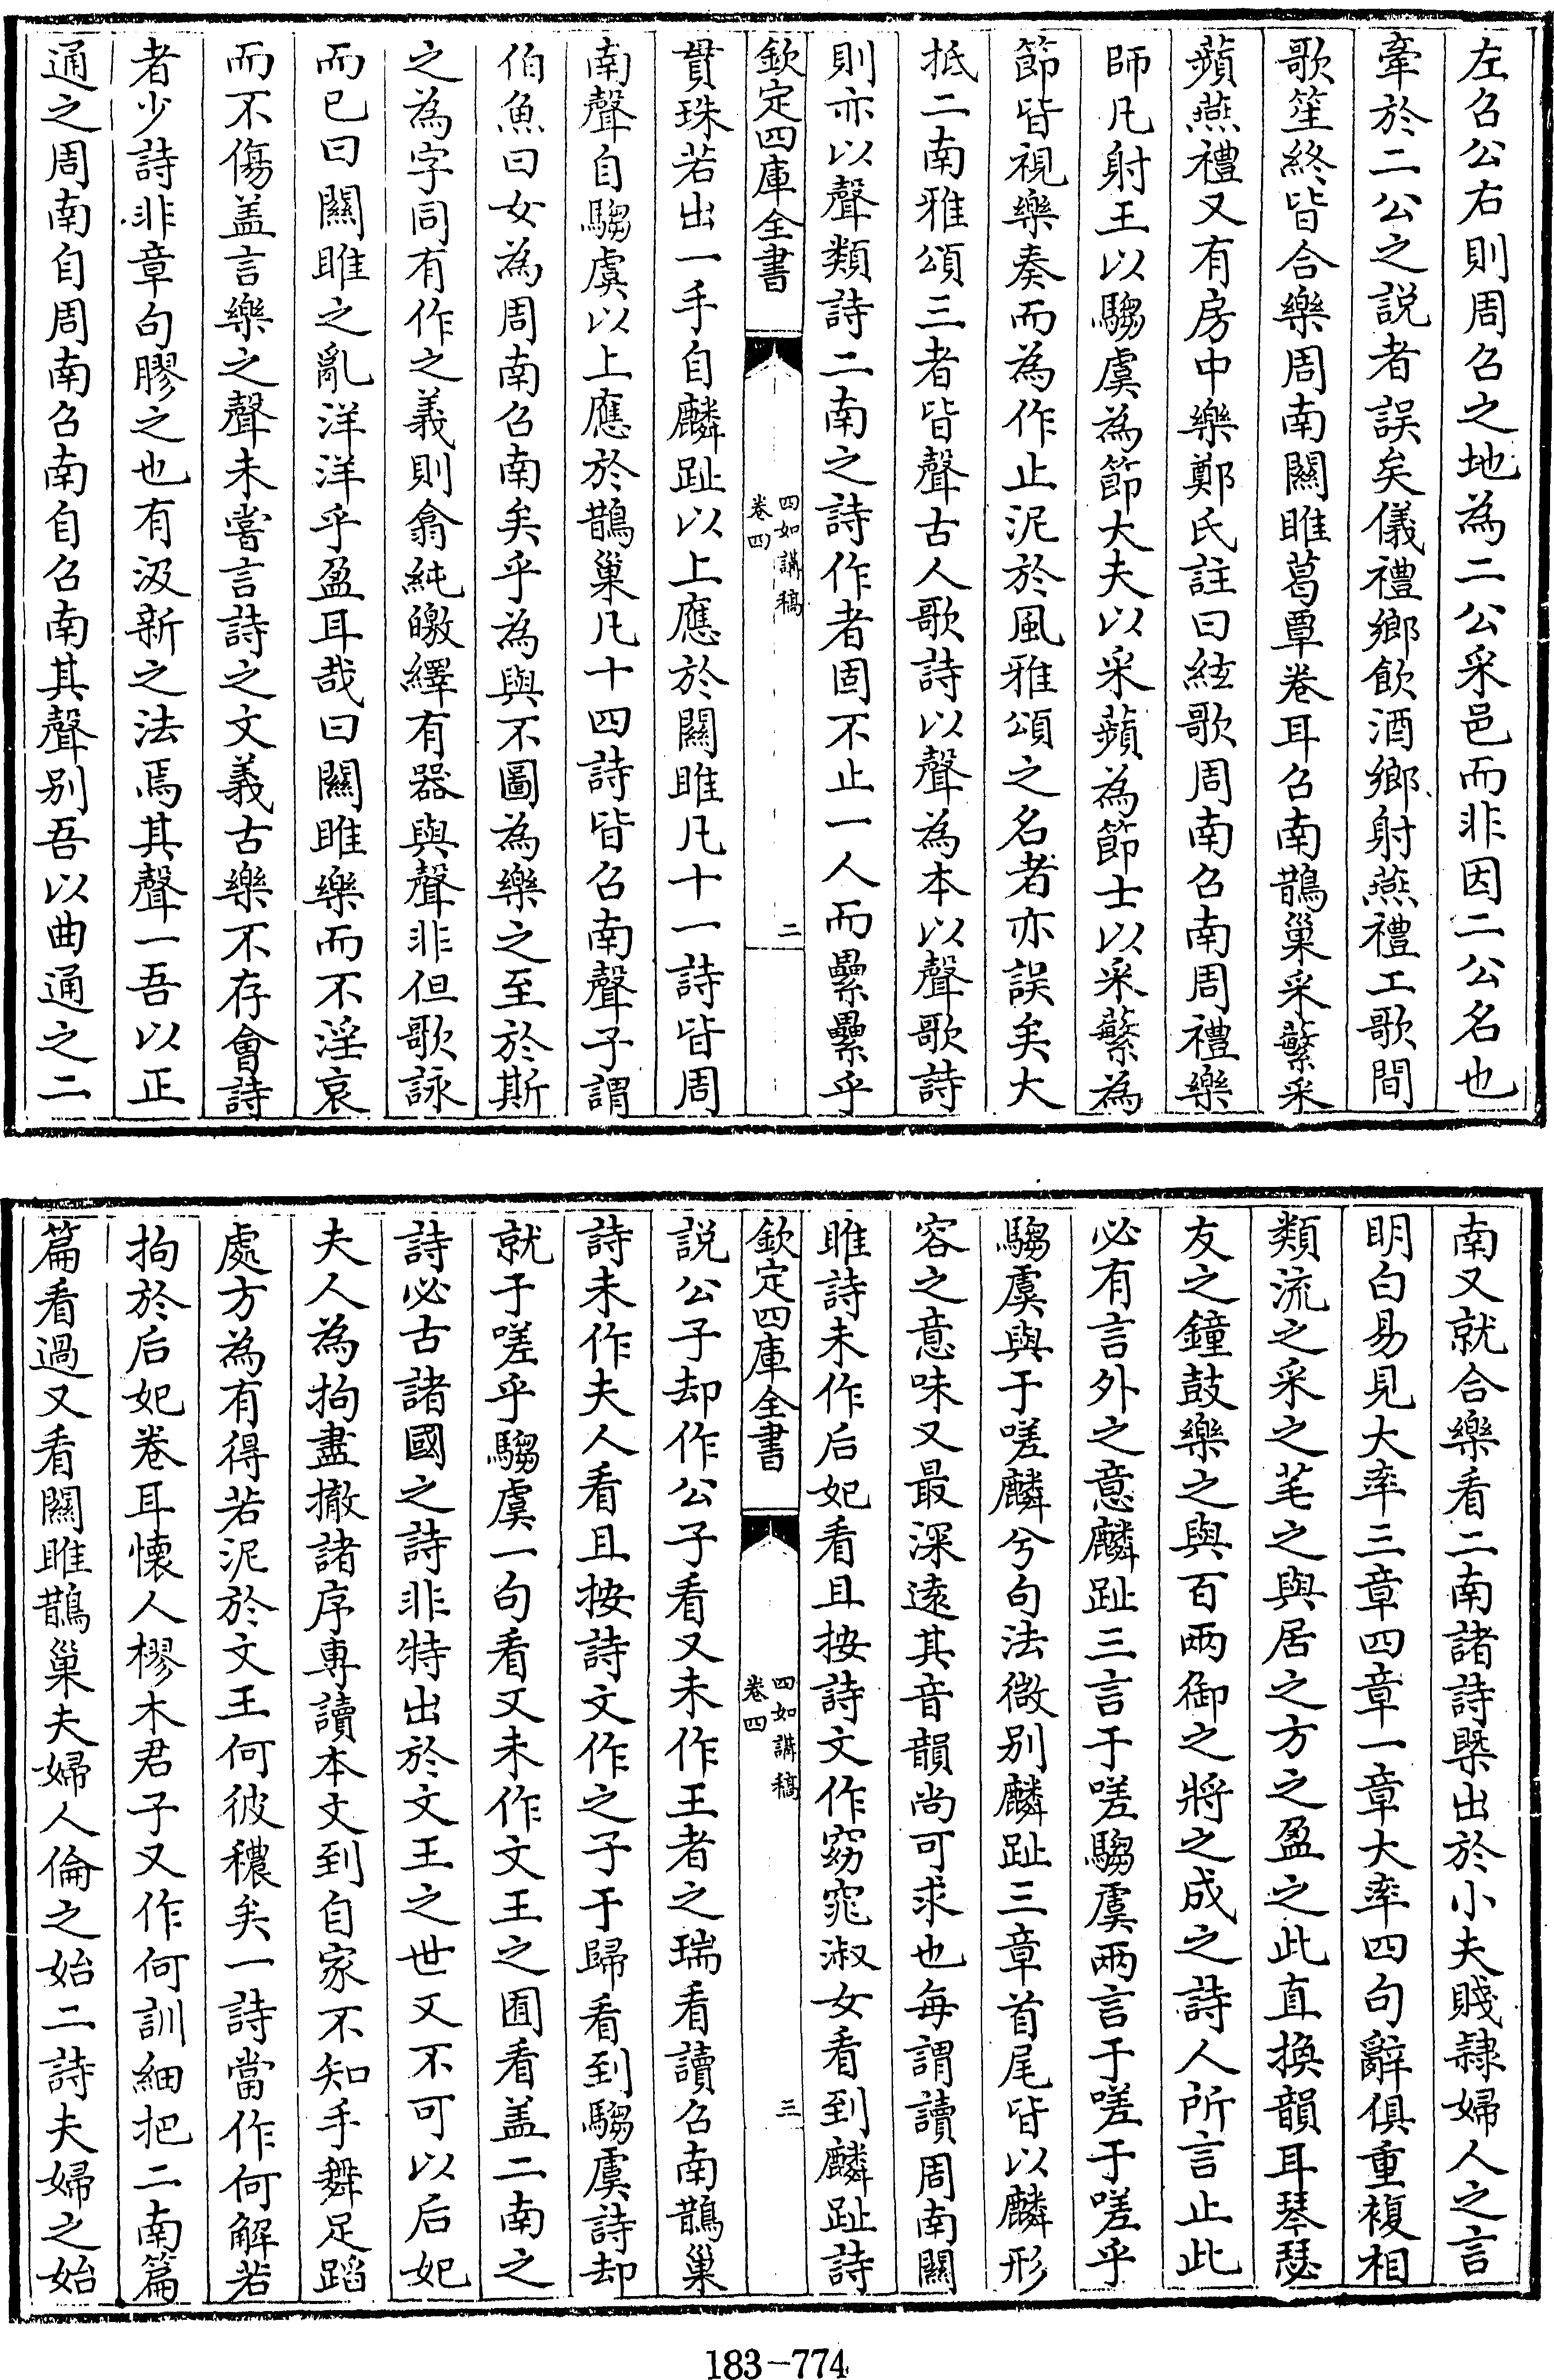 左召公右則周召之地為二公采邑而非因二公名也
牽於二公之説者誤矣儀禮鄉飲酒鄉射燕禮工歌間
歌笙終皆合樂周南關雎葛覃卷耳召南鵲巢采蘩采
蘋燕禮又有房中樂鄭氏註曰絃歌周南召南周禮樂
師凡射王以騶虞為節大夫以采蘋為節士以采蘩為
節皆視樂奏而為作止泥於風雅頌之名者亦誤矣大
抵二南雅頌三者皆聲古人歌詩以聲為本以聲歌詩
則亦以聲類詩二南之詩作者固不止一人而纍纍乎
欽定四庫全書
四如講稿
卷四
二
貫珠若出一手自麟趾以上應於關雎凡十一詩皆周
南聲自騶虞以上應於鵲巢凡十四詩皆召南聲子謂
伯魚曰女為周南召南矣乎為與不圖為樂之至於斯
之為字同有作之義則翕純皦繹有器與聲非但歌詠
而已曰關雎之亂洋洋乎盈耳哉曰關雎樂而不淫哀
而不傷盖言樂之聲未嘗言詩之文義古樂不存會詩
者少詩非章句膠之也有汲新之法焉其聲一吾以正
通之周南自周南召南自召南其聲别吾以曲通之二
南又就合樂看二南諸詩槩出於小夫賤隸婦人之言
明白易見大率三章四章一章大率四句辭俱重複相
類流之采之芼之與居之方之盈之此直換韻耳琴瑟
友之鐘鼓樂之與百兩御之將之成之詩人所言止此
必有言外之意麟趾三言于嗟騶虞兩言于嗟于嗟乎
騶虞與于嗟麟兮句法微别麟趾三章首尾皆以麟形
容之意味又最深遠其音韻尚可求也每謂讀周南關
雎詩未作后妃看且按詩文作窈窕淑女看到麟趾詩
欽定四庫全書
四如講稿
卷四
三
説公子却作公子看又未作王者之瑞看讀召南鵲巢
詩未作夫人看且按詩文作之子于歸看到騶虞詩却
就于嗟乎騶虞一句看又未作文王之囿看盖二南之
詩必古諸國之詩非特出於文王之世又不可以后妃
夫人為拘盡撤諸序專讀本文到自家不知手舞足蹈
處方為有得若泥於文王何彼穠矣一詩當作何解若
拘於后妃卷耳懷人樛木君子又作何訓細把二南篇
篇看過又看關雎鵲巢夫婦人倫之始二詩夫婦之始
183-774